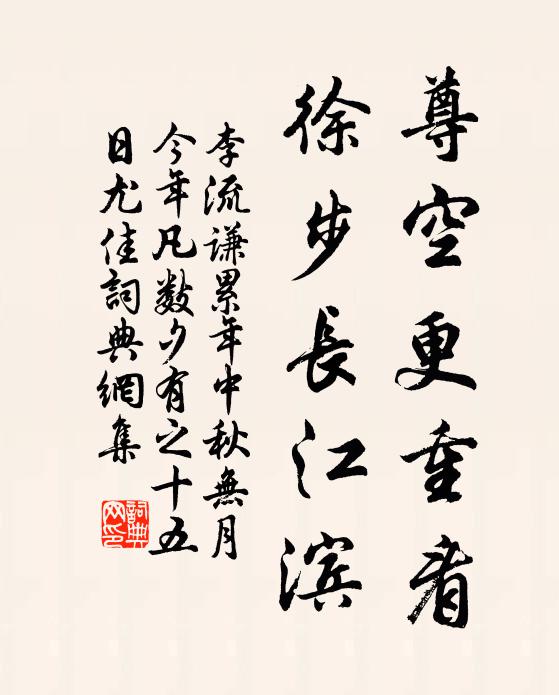 尊空更重肴
徐步長江濱
李流謙累年中秋無月
今年凡數夕有之十五
日尤佳詞典網集
詞典
网印